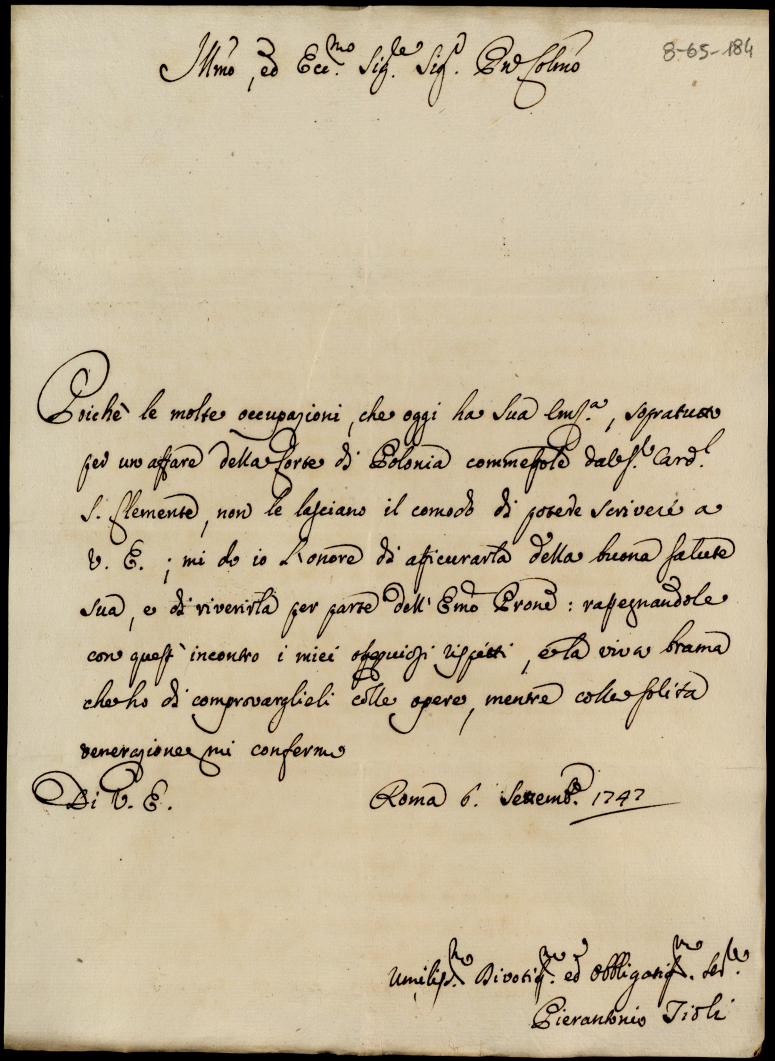 8-65-184
Illmo, ed Ecc.mo Sig.re Sig.r Pne Colmo
Poichè le molte occupazioni, che oggi ha Sua Emza, sopratutto
per un affare della Corte di Polonia commessole dal Sr. Card.l
S. Clemente, non le lasciano il comodo di potere scrivere a
V. E. ; mi do io l'onore di assicurarla della buona salute
sua, e di riverirla per parte dell' Emo Prone : rassegnandole
con quest' incontro i miei ossequiosi rispetti, e la viva brama
che ho di comprovarglieli colle opere, mentre colla solita
venerazione mi confermo
Di V. E. Roma 6. Settemb.e 1747
Umiliss.mo Divotiss.mo ed Obbligatiss.mo Ser.re
Pierantonio Tioli